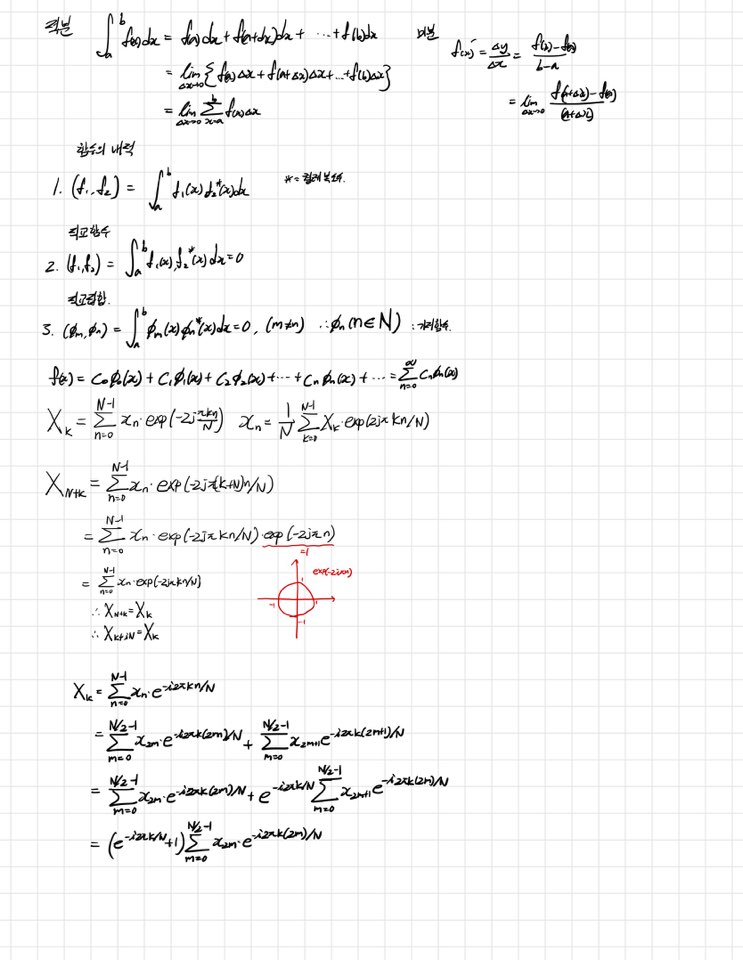 적분 ∫_a^b f(x)dx = f(a)dx + f(a+dx)dx + ⋯ + f(b)dx
= lim_{Δx→0} { f(a)Δx + f(a+Δx)Δx + … + f(b)Δx }
= lim_{Δx→0} Σ_{x=a}^{b} f(x)Δx
미분 f(x)′ = Δy/Δx = (f(b)−f(a))/(b−a)
= lim_{Δx→0} (f(a+Δx)−f(a))/((a+Δx))
함수의 내적
1. (f₁, f₂) = ∫_a^b f₁(x) f₂*(x)dx * = 켤레복소수.
직교함수
2. (f₁, f₂) = ∫_a^b f₁(x) f₂*(x)dx = 0
직교집합.
3. (ϕm, ϕn) = ∫_a^b ϕm(x) ϕn*(x)dx = 0, (m≠n) ∴ϕn(n∈N) : 기저함수.
f(x) = C₀ϕ₀(x) + C₁ϕ₁(x) + C₂ϕ₂(x) + ⋯ + Cnϕn(x) + ⋯ = Σ_{n=0}^{∞} Cnϕn(x)
X_k = Σ_{n=0}^{N-1} x_n · exp(-2j πkn/N) x_n = 1/N Σ_{k=0}^{N-1} X_k · exp(2jπkn/N)
X_{N+k} = Σ_{n=0}^{N-1} x_n · exp(-2jπ(k+N)n/N)
= Σ_{n=0}^{N-1} x_n · exp(-2jπkn/N) · exp(-2jπn)
=1
= Σ_{n=0}^{N-1} x_n · exp(-2jπkn/N)
exp(-2jπn)
1
-1 1
-1
∴ X_{N+k} = X_k
∴ X_{k+iN} = X_k
X_k = Σ_{n=0}^{N-1} x_n · e^{-i2πkn/N}
= Σ_{m=0}^{N/2-1} x_{2m} · e^{-i2πk(2m)/N} + Σ_{m=0}^{N/2-1} x_{2m+1} e^{-i2πk(2m+1)/N}
= Σ_{m=0}^{N/2-1} x_{2m} · e^{-i2πk(2m)/N} + e^{-i2πk/N} Σ_{m=0}^{N/2-1} x_{2m+1} e^{-i2πk(2m)/N}
= (e^{-i2πk/N} + 1) Σ_{m=0}^{N/2-1} x_{2m} · e^{-i2πk(2m)/N}